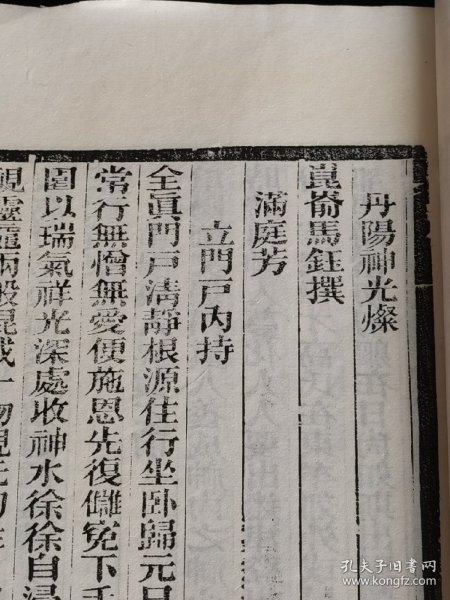 丹陽神光燦
崑崳馬鈺撰
滿庭芳
立門戶內持
全眞門戶淸靜根源住行坐卧歸元
常行無憎無愛便施恩先復讎冤下
圍以瑞氣祥光深處收神水徐徐自
靈
孔夫子旧書网
www.kongfz.com